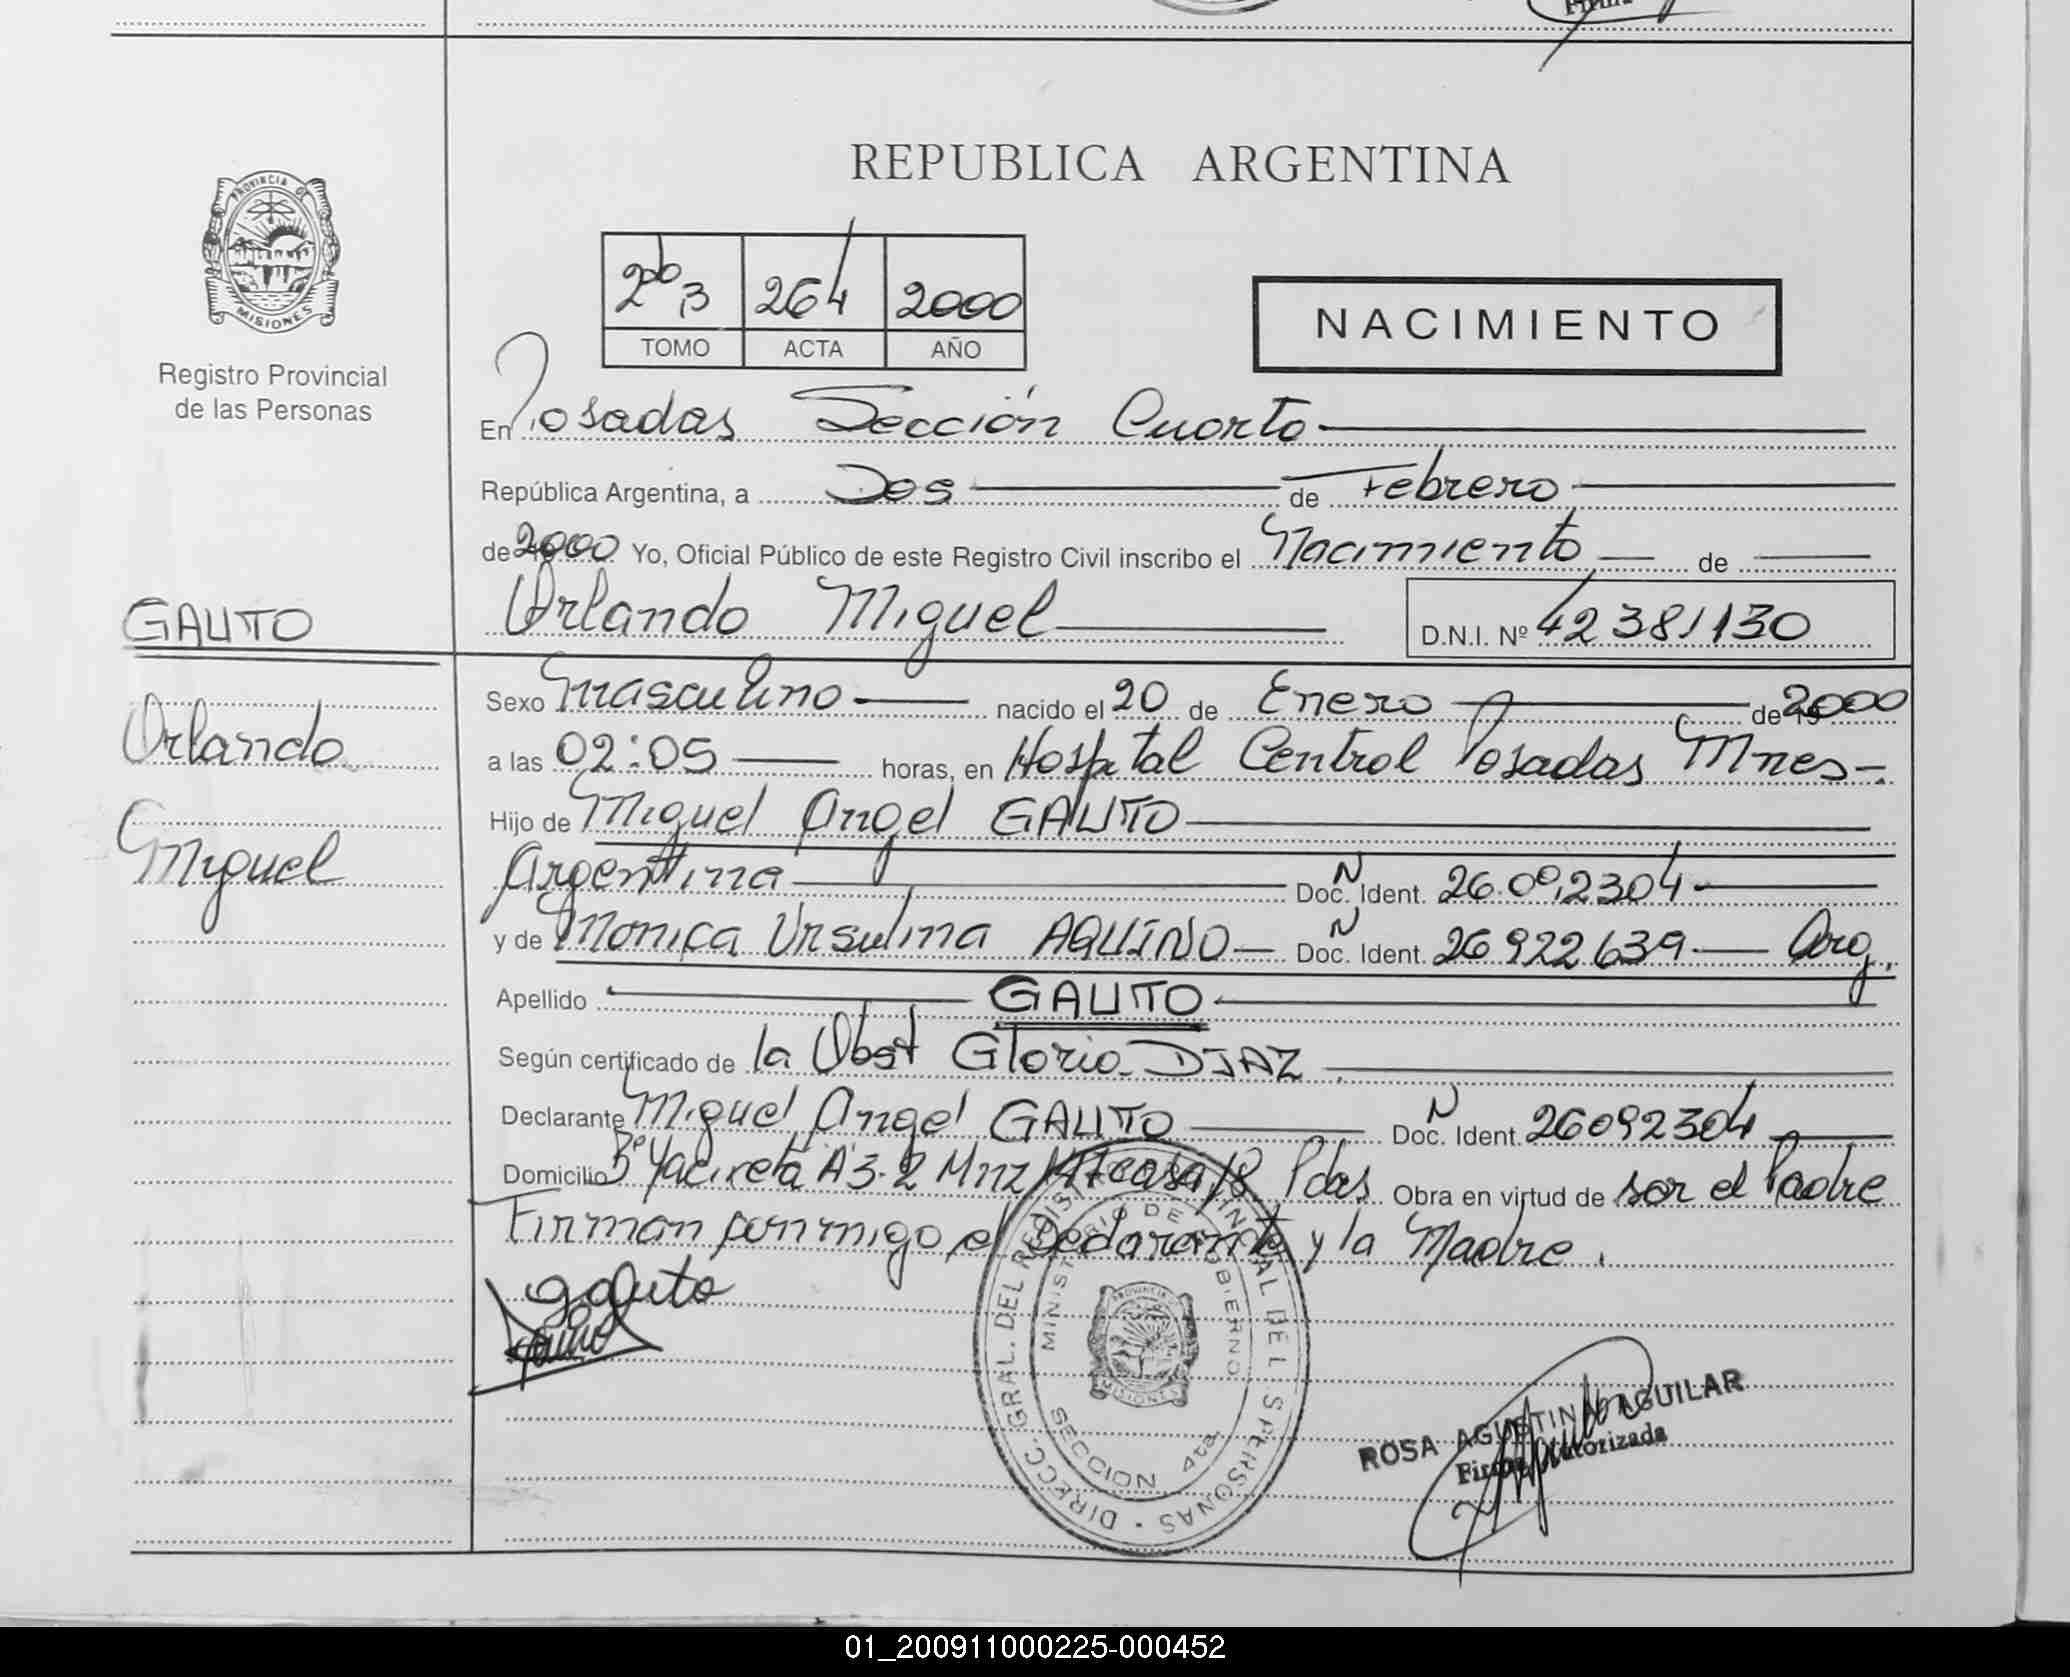 REPUBLICA ARGENTINA
PROVINCIA DE
MISIONES
Registro Provincial
de las Personas
2do B 264 2000
TOMO ACTA AÑO
NACIMIENTO
En Posadas Sección Cuarta
República Argentina, a Dos de Febrero
de 2000 Yo, Oficial Público de este Registro Civil inscribo el Nacimiento de
GAUTO
Orlando Miguel D.N.I. Nº 42381130
Orlando
Miguel
Sexo Masculino nacido el 20 de Enero de 2000
a las 02:05 horas, en Hospital Central Posadas Mnes
Hijo de Miguel Angel GAUTO
Argentina Doc. N Ident. 26.092304
y de Monica Ursulina AQUINO Doc. N Ident. 26922639 Arg.
Apellido GAUTO
Según certificado de la Obst Gloria DIAZ
Declarante Miguel Angel GAUTO Doc. N Ident. 26092304
Domicilio Bº Yacireta A3-2 Mnz casa 18 Pdas Obra en virtud de ser el Padre
Firman conmigo el Declarante y la Madre.
Gauto
DIRECC. GRAL. DEL REGIST PROVINCIAL DE LAS PERSONAS
MINISTERIO DE GOBIERNO
SECCION 4ta
PROVINCIA
MISIONES
ROSA AGUSTINA AGUILAR
Firma Autorizada
01_200911000225-000452